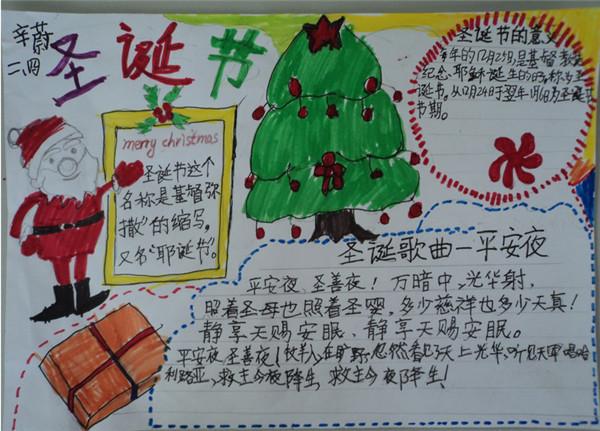 辛蔚
二.四
圣诞节
圣诞节的意义
每年的12月25日,是基督教徒
纪念耶稣诞生的日子称为圣
诞节。从12月24日于翌年1月6日为圣诞节
节期。
merry christmas
圣诞节这个
名称是基督弥
撒”的缩写。
又名“耶诞节”。
圣诞歌曲—平安夜
平安夜、圣善夜！万暗中,光华射,
照着圣母也照着圣婴,多少慈祥也多少天真！
静享天赐安眠、静享天赐安眠。
平安夜,圣善夜！牧羊人,在旷野,忽然看见了天上光华,听见天军唱哈
利路亚,救主今夜降生,救主今夜降生！